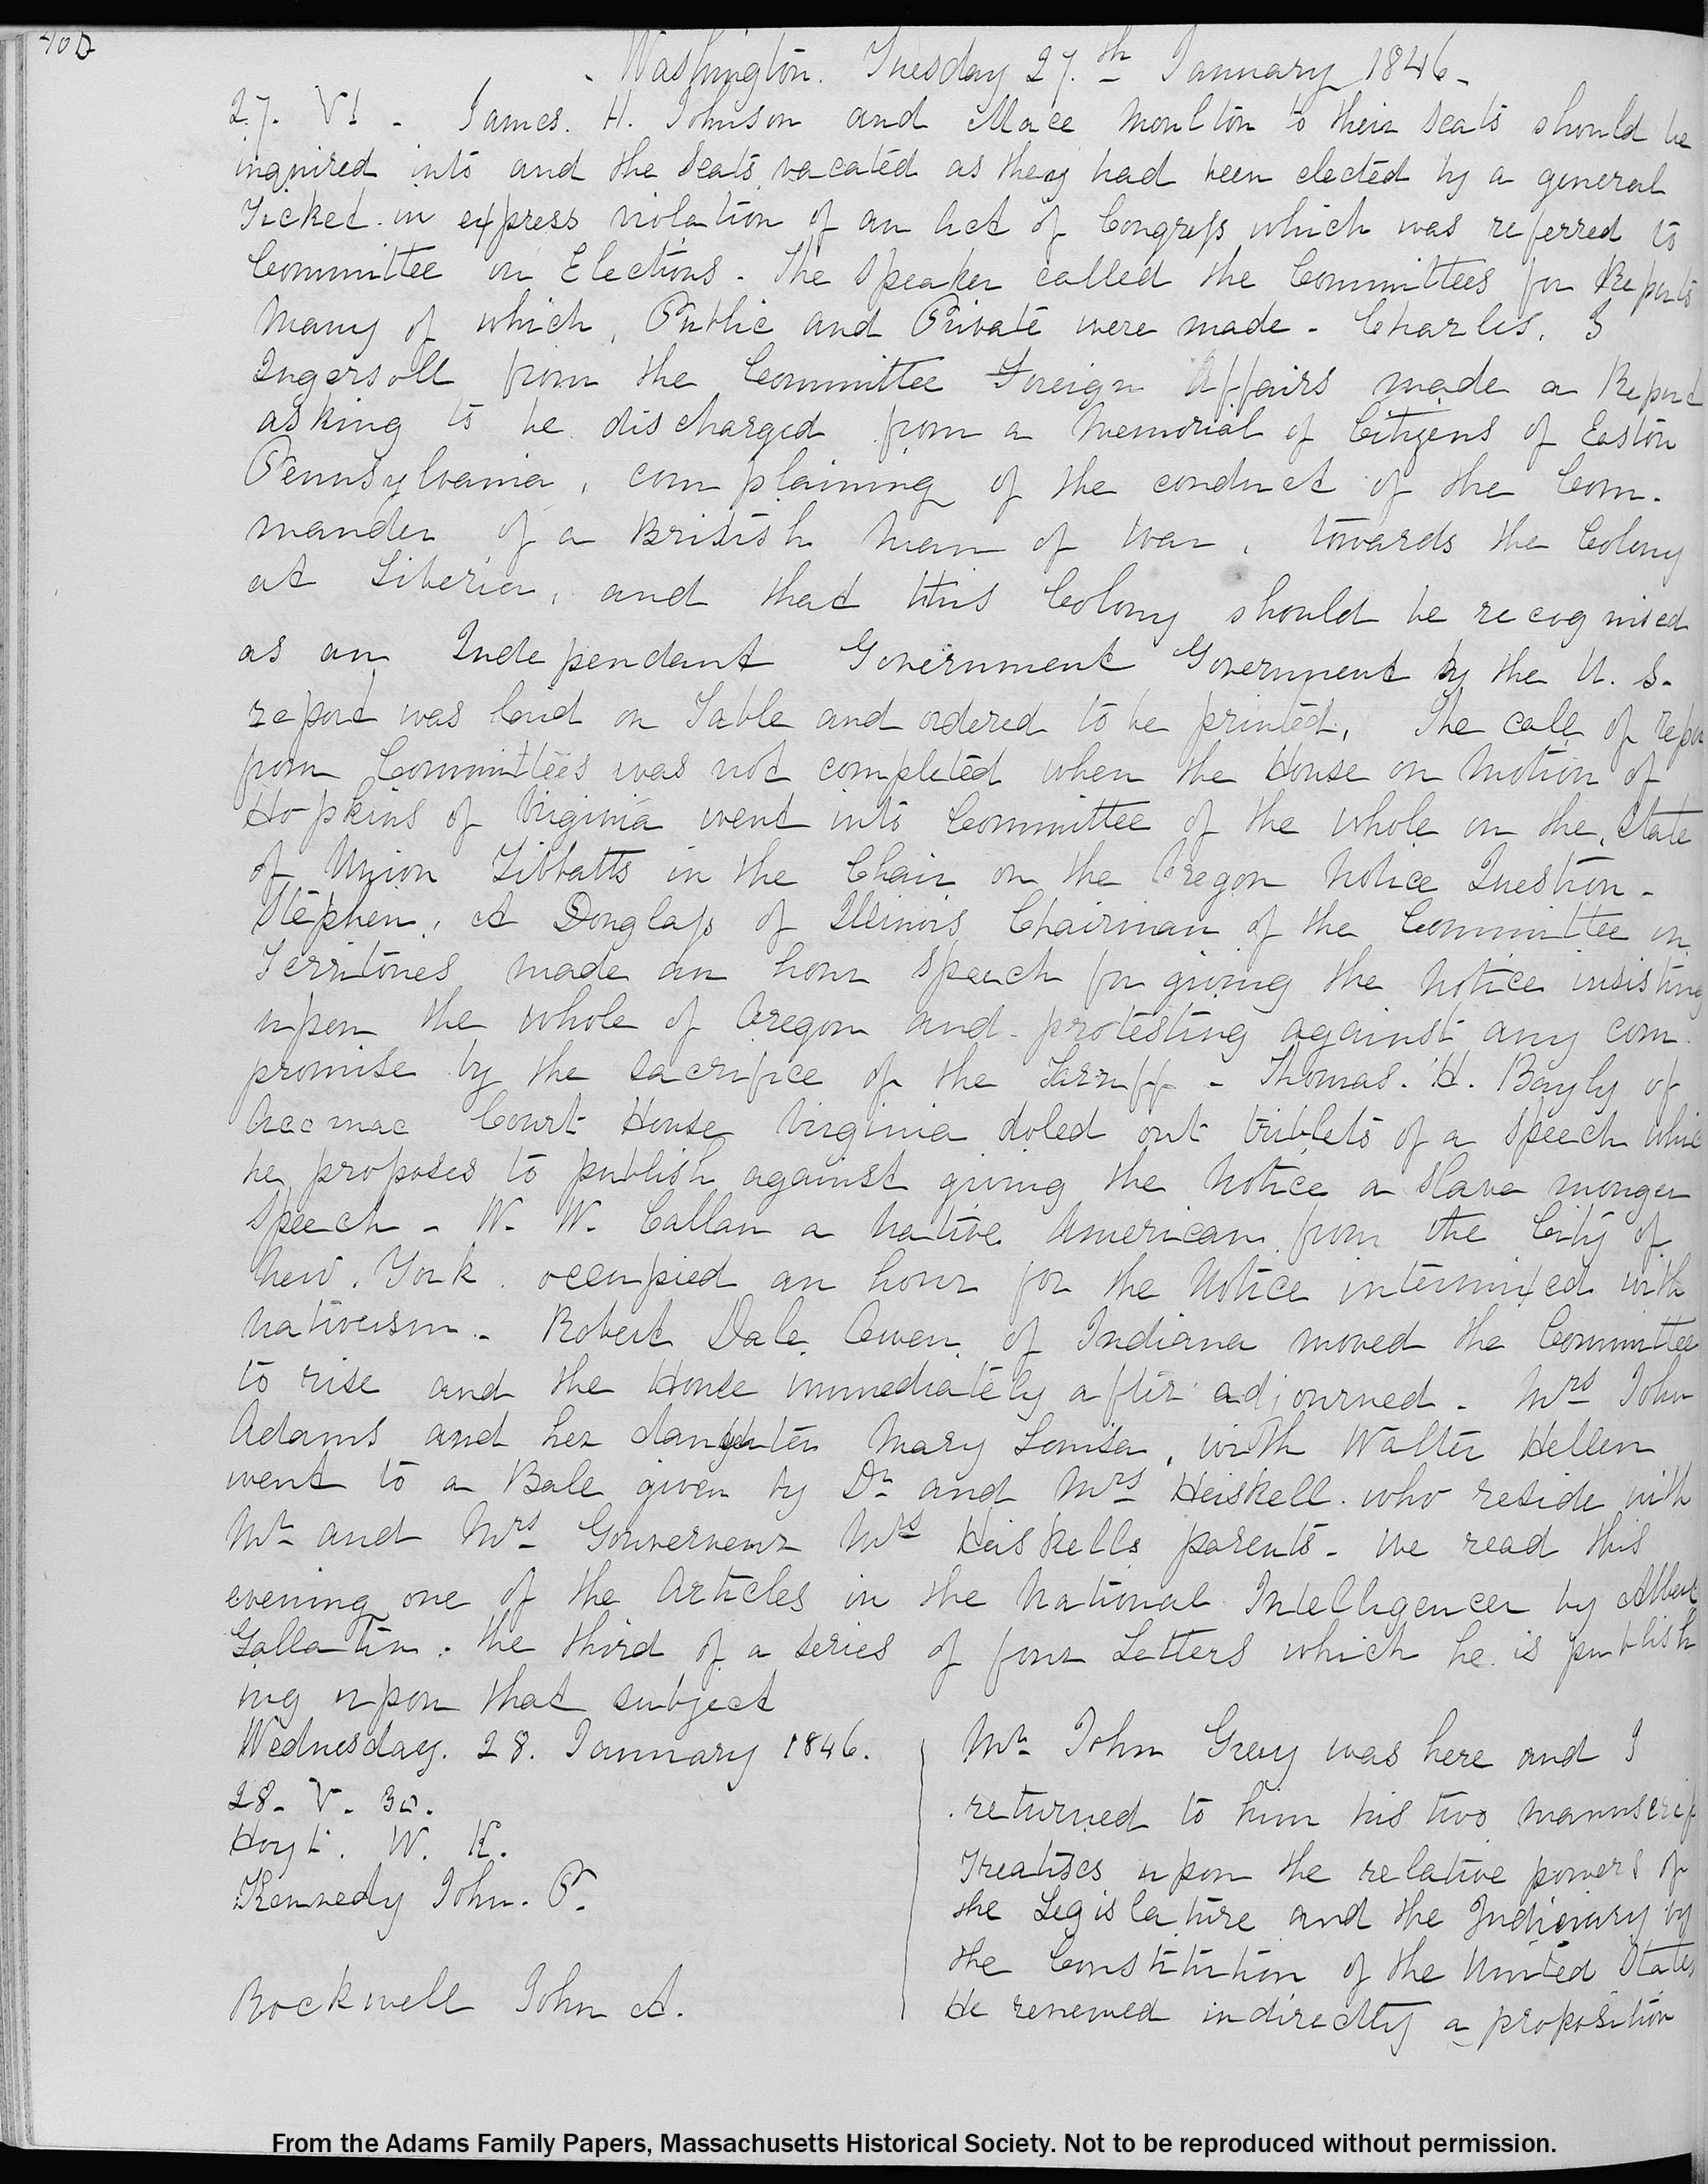 400
Washington. Tuesday 27.th January 1846-
27. VI - James. H. Johnson and Mace Moulton to their seats should be
inquired into and the seats vacated as they had been elected by a general
Ticket in express violation of an Act of Congress which was referred to
Committee on Elections - The Speaker called the Committees for Reports
Many of which, Public and Private were made - Charles. J
Ingersoll from the Committee Foreign Affairs made a Report
asking to be discharged from a Memorial of Citizens of Easton
Pennsylvania, complaining of the conduct of the Com-
mander of a British Man of War, towards the Colony
at Liberia, and that this Colony should be recognised
as an Independant Government Government by the U. S-
report was laid on Table and ordered to be printed, The call of repor
from Committees was not completed when the House on Motion of
Hopkins of Virginia went into Committee of the whole on the State
of Union Tibbatts in the Chair on the Oregon Notice Question-
Stephen, A Douglass of Illinois Chairman of the Committee on
Territories made an hour Speech for giving the Notice insisting
upon the whole of Oregon and protesting against any com
promise by the sacrifice of the Tarriff - Thomas. H. Bayly of
Accomac Court House Virginia doled out triblets of a Speech whic
he proposes to publish against giving the Notice a slave monger
Speech - W. W. Callan a Native American from the City of
New. York occupied an hour for the Notice intermixed with
nativeism - Robert Dale Owen of Indiana moved the Committee
to rise and the House immediately after adjourned - Mrs John
Adams and her daughter Mary Louisa, with Walter Hellen
went to a Bale given by Dr and Mrs Heiskell who reside with
Mr and Mrs Gouverneur Mrs Heiskells parents - we read this
evening one of the Articles in the National Intelligencer by Albert
Gallatin. the third of a series of four Letters which he is publish
ing upon that subject
Wednesday. 28. January 1846.
28- V. 30.
Hoyt. W. K.
Kennedy John. P.
Rockwell John A.
Mr John Grey was here and I
returned to him his two manuscrip
Treatises upon the relative powers of
the Legislature and the Judiciary by
the Constitution of the United States
He renewed indirectly a proposition
From the Adams Family Papers, Massachusetts Historical Society. Not to be reproduced without permission.